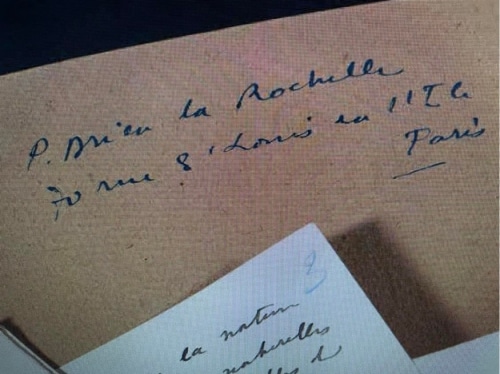 P. Drieu la Rochelle
70 rue St Louis en l'Ile
Paris
8
la nature
naturelles